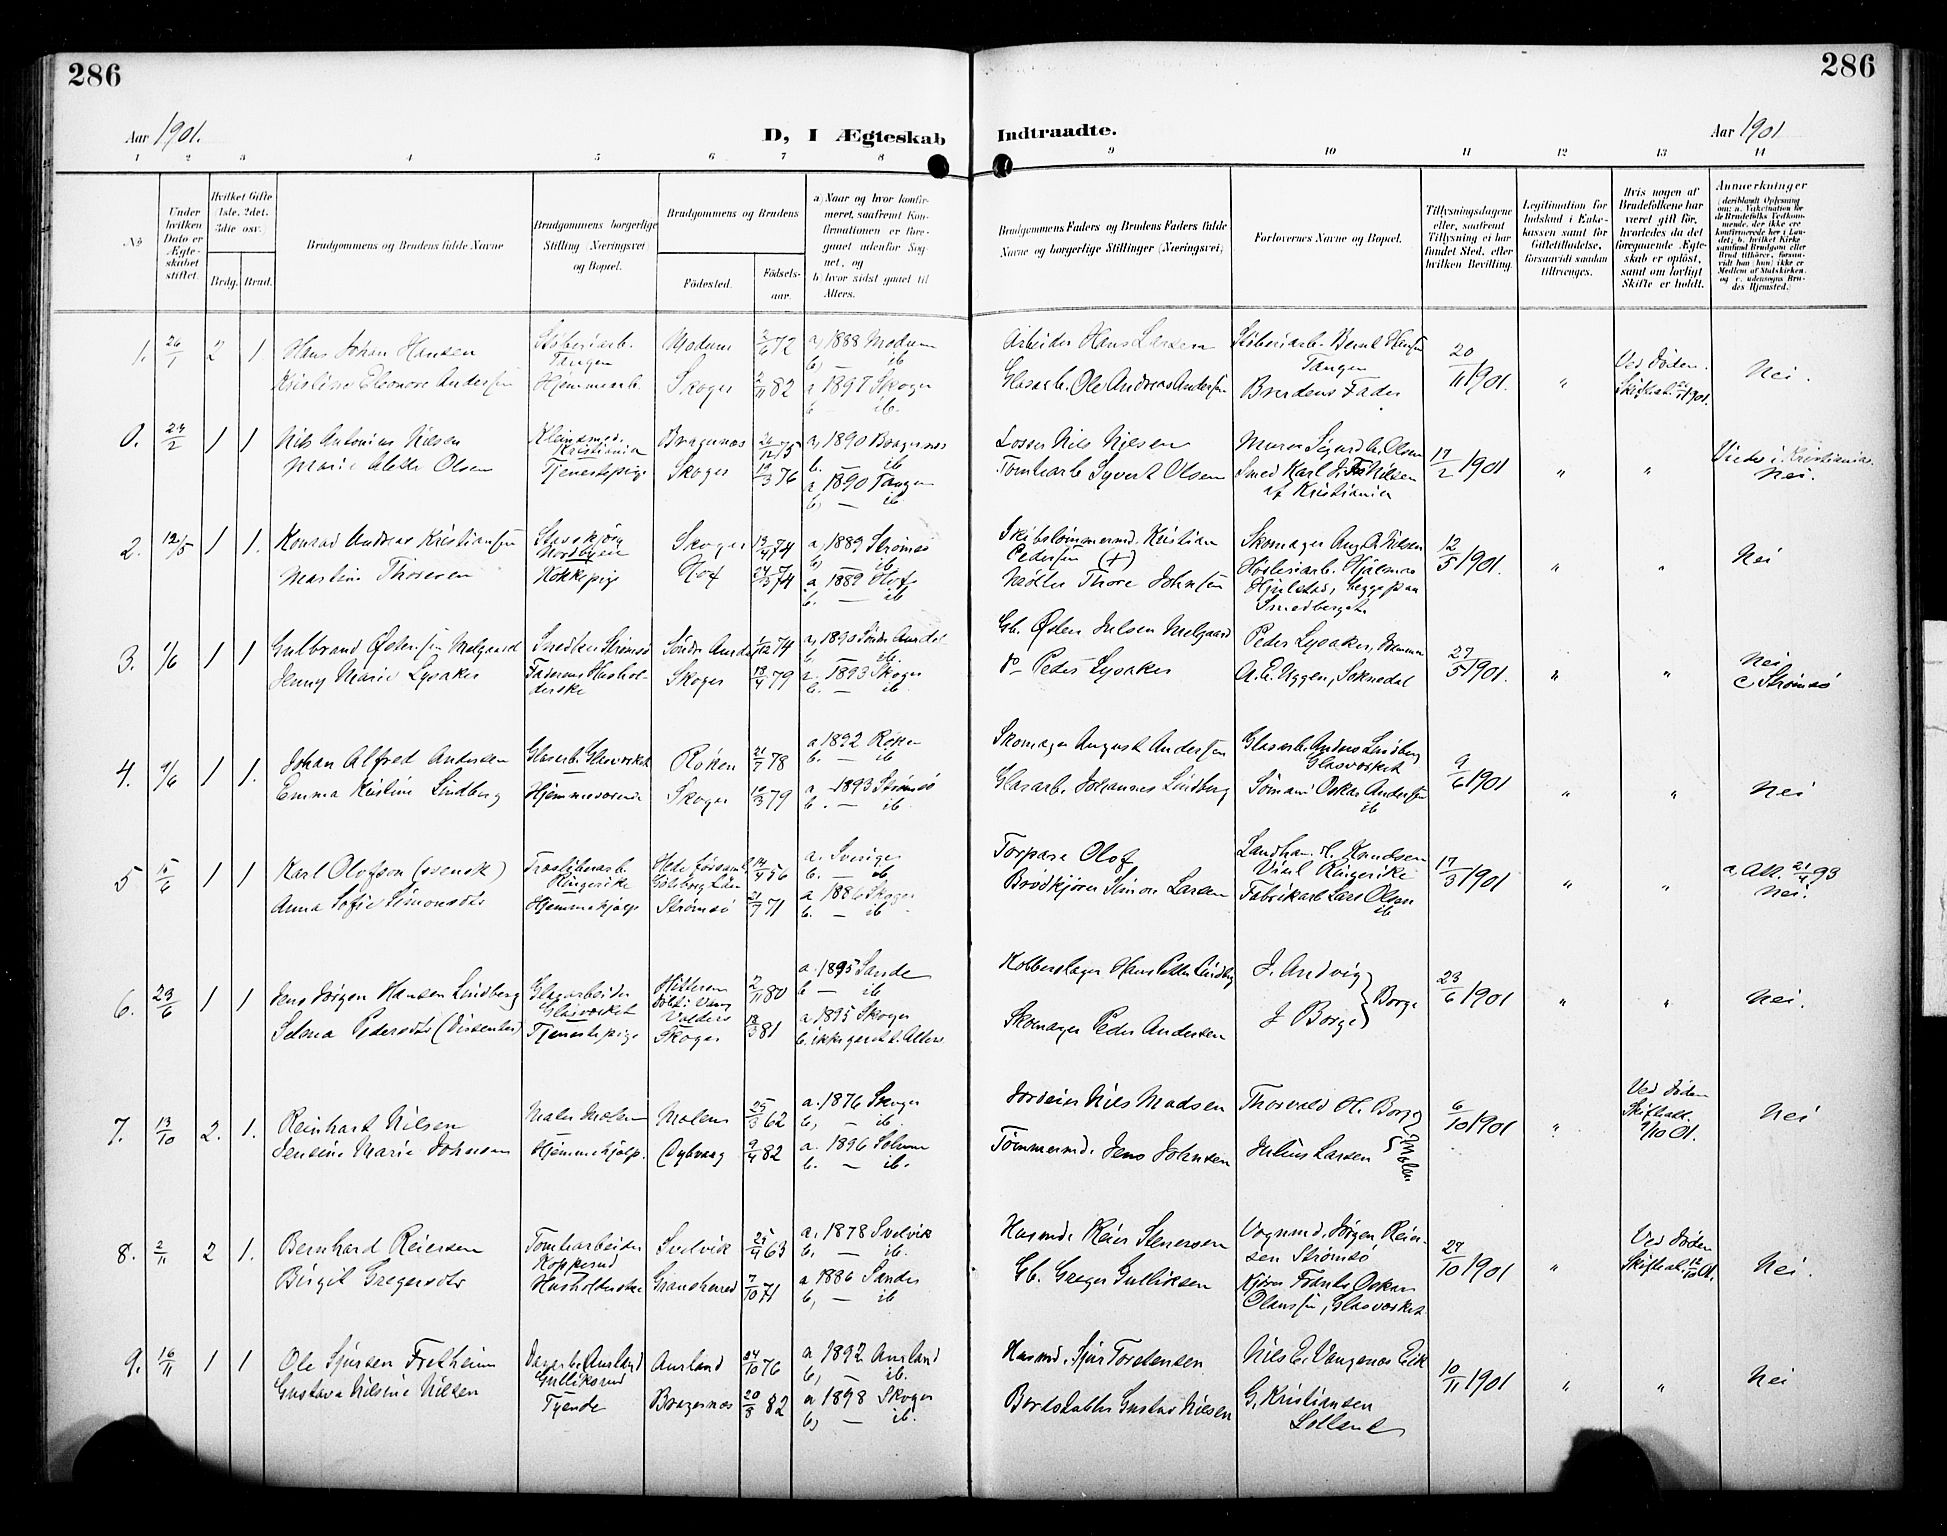 286
286
Aar 1901.
D, I Ægteskab
Indtraadte.
Aar 1901
1 2 3 4 5 6 7 8 9 10 11 12 13 14
No
Under hvilken Dato er Ægteskabet stiftet.
Hvilket Gifte 1ste, 2det, 3die osv.
Brdg. Brud.
Brudgommens og Brudens fulde Navne
Brudgommens borgerlige Stilling (Næringsvei) og Bopæl.
Brudgommens og Brudens
Fødested.
Fødselsaar.
a) Naar og hvor konfirmeret, saafremt Konfirmationen er foregaaet udenfor Sognet, og
b) hvor sidst gaaet til Alters.
Brudgommens Faders og Brudens Faders fulde Navne og borgerlige Stillinger (Næringsvei)
Forlovernes Navne og Bopæl.
Tillysningsdagene eller, saafremt Tillysning ei har fundet Sted, efter hvilken Bevilling.
Legitimation for Indskud i Enkekassen samt for Giftetilladelse, forsaavidt saadan tiltrænges.
Hvis nogen af Brudefolkene har været gift før, hvorledes da det foregaaende Ægteskab er opløst, samt om lovligt Skifte er holdt.
Anmerkninger
1. 26/1 2 1 Hans Johan Hansen Støberiarb. Tangen Modum 2/6 72 a, 1888 Modum b, — ib Arbeider Hans Larsen Støberiarb. Bernt Hansen Tangen 20/11 1901. " Ved Døden. Nei.
Kristine Eleonore Andersen Hjemmearb. Skoger 2/11 82 a 1897 Skoger b — ib. Glasarb. Ole Andreas Andersen Brudens Fader
0. 24/2 1 1 Nils Antonius Nilsen Kleinsmed. Kristiania Bragernæs 26/12 75 a, 1890 Bragernæs b. — ib Losser Nils Nilsen Murer Sigurd A. Olsen 17/2 1901 " " Viede i Kristiania. Nei.
Marie Olsen Tjenestepige Skoger 19/3 76 a 1890 Tangen b, — ib Tomtearb Syvert Olsen Smed Karl J. F. Nilsen af Kristiania
2. 12/5 1 1. Konrad Andreas Kristiansen Nordbyen Skoger 13/4 74 a, 1889 Strømsø b, — ib Skibstømmermd. Kristian Pedersen (+) Skomager Aug. A. Nilsen 12/5 1901. " " Nei
Martine Thoresen Kokkepige Hof 24/5 74 a. 1889 Hof b. — ib Thore Johnsen Høvleriarb. Hjalmar Hjulstad, begge paa Smedberget
3. 1/6 1 1 Gulbrand Østensen Melgaard Snedker Strømsø Søndre Aurdal 1/12 74 a, 1890 Søndr Aurdal b — ib. Gb. Østen Julsen Melgaard Peder Lysaker, 27/5 1901. " " Nei c Strømsø
Jenny Marie Lysaker Faderens Husholderske Skoger 13/4 79 a. 1893 Skoger b. — ib. do Peder Lysaker A. A. Uggen, Soknedal
4. 9/6 1 1. Johan Alfred Andersen Glasarb. Glasverket Røken 21/7 78 a 1892 Røken b. — ib Skomager August Andersen Glasarb. Anders Lindberg Glasverket 9/6 1901 " " Nei
Emma Kristine Lindberg Hjemmeværende Skoger 10/3 79 a, 1893 Strømsø b. — ib Glasarb. Johannes Lindberg Sømand Oskar Andersen ib
5 15/6 1 1 Karl Olofson (svensk) Træsliberiarb. Ringerike Hede Församl. Göteborg Län 14/4 56 a. Sverige b. — ib Torpare Olof Landhan. H. Knudsen Viul Ringerike 17/3 1901 " " a, Att. 21/4 93 Nei.
Anna Sofie Simonsdtr Hjemmehjælp Strømsø 21/9 71 a 1886 Skoger b. — ib Brødkjører Simon Larsen Fabrikarb Lars Olsen ib
6. 23/6 1 1 Jens Jørgen Hansen Lindberg Glasarbeider Glasverket Valders 2/11 80 a. 1895 Sande b — ib Kobberslager Hans Peter Lindberg J. Andvig 23/6 1901 " " Nei.
Selma Pedersdtr Tjenestepige Skoger 12/3 81 a. 1895 Skoger b. ikke gaaet t. Alters Skomager Peder Andersen J Borge } Borge
7. 13/10 2. 1. Reinhart Nilsen Maler Molen Molen 25/3 62 a. 1876 Skoger b, — ib. Jordeier Nils Madsen Thorvald H. Borg 6/10 1901 " Ved Døden Skifteatt. 9/10 01. Nei
Jensine Marie Johnsen Hjemmehjælp. Dybvaag 9/4 82 a. 1896 b. — ib. Tømmermd. Jens Johnsen Julius Larsen } Molen
8. 2/11 2 1. Bernhard Reiersen Tomtearbeider Kopperud Svelvik 25/4 63 a, 1878 Svelvik b, — ib. Husmd. Reier Stenersen Vognmd. Jørgen Reiersen Strømsø 27/10 1901 " Ved Døden Skifteat. 12/10 01. Nei.
Birgit Gregersdtr Husholderske Gransherred 7/10 71 a 1886 Sandes b, — ib Gb. Greger Gulliksen Kjører Frants Oskar Olausen, Glasverket
9. 16/11 1 1 Ole Sjursen Fretheim Dagarb. Aurland Gulliksrud Aurland 24/10 76 a. 1892 Aurland b, — ib. Husmd. Sjur Torstensen Nils E. Vangenæs Eik 10/11 1901 " " Nei
Gustava Nilsine Nilsen Tjende Bragernæs 20/8 82 a 1898 Skoger b, — ib. Bordstabler Gustav Nilsen G. Kristiansen Lolland